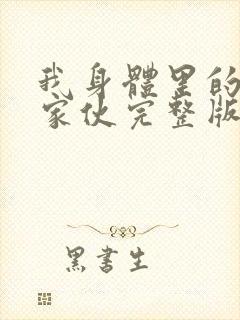 我身體里的
家伙完整版
黑書生